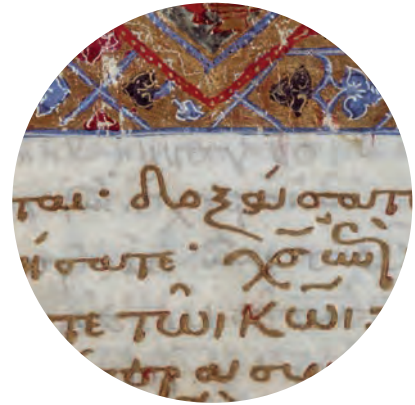 ται· δοξάσατ
ήσατε· χ̅σ̅ ἐπὶ
τε τῶι κ̅ω̅ι